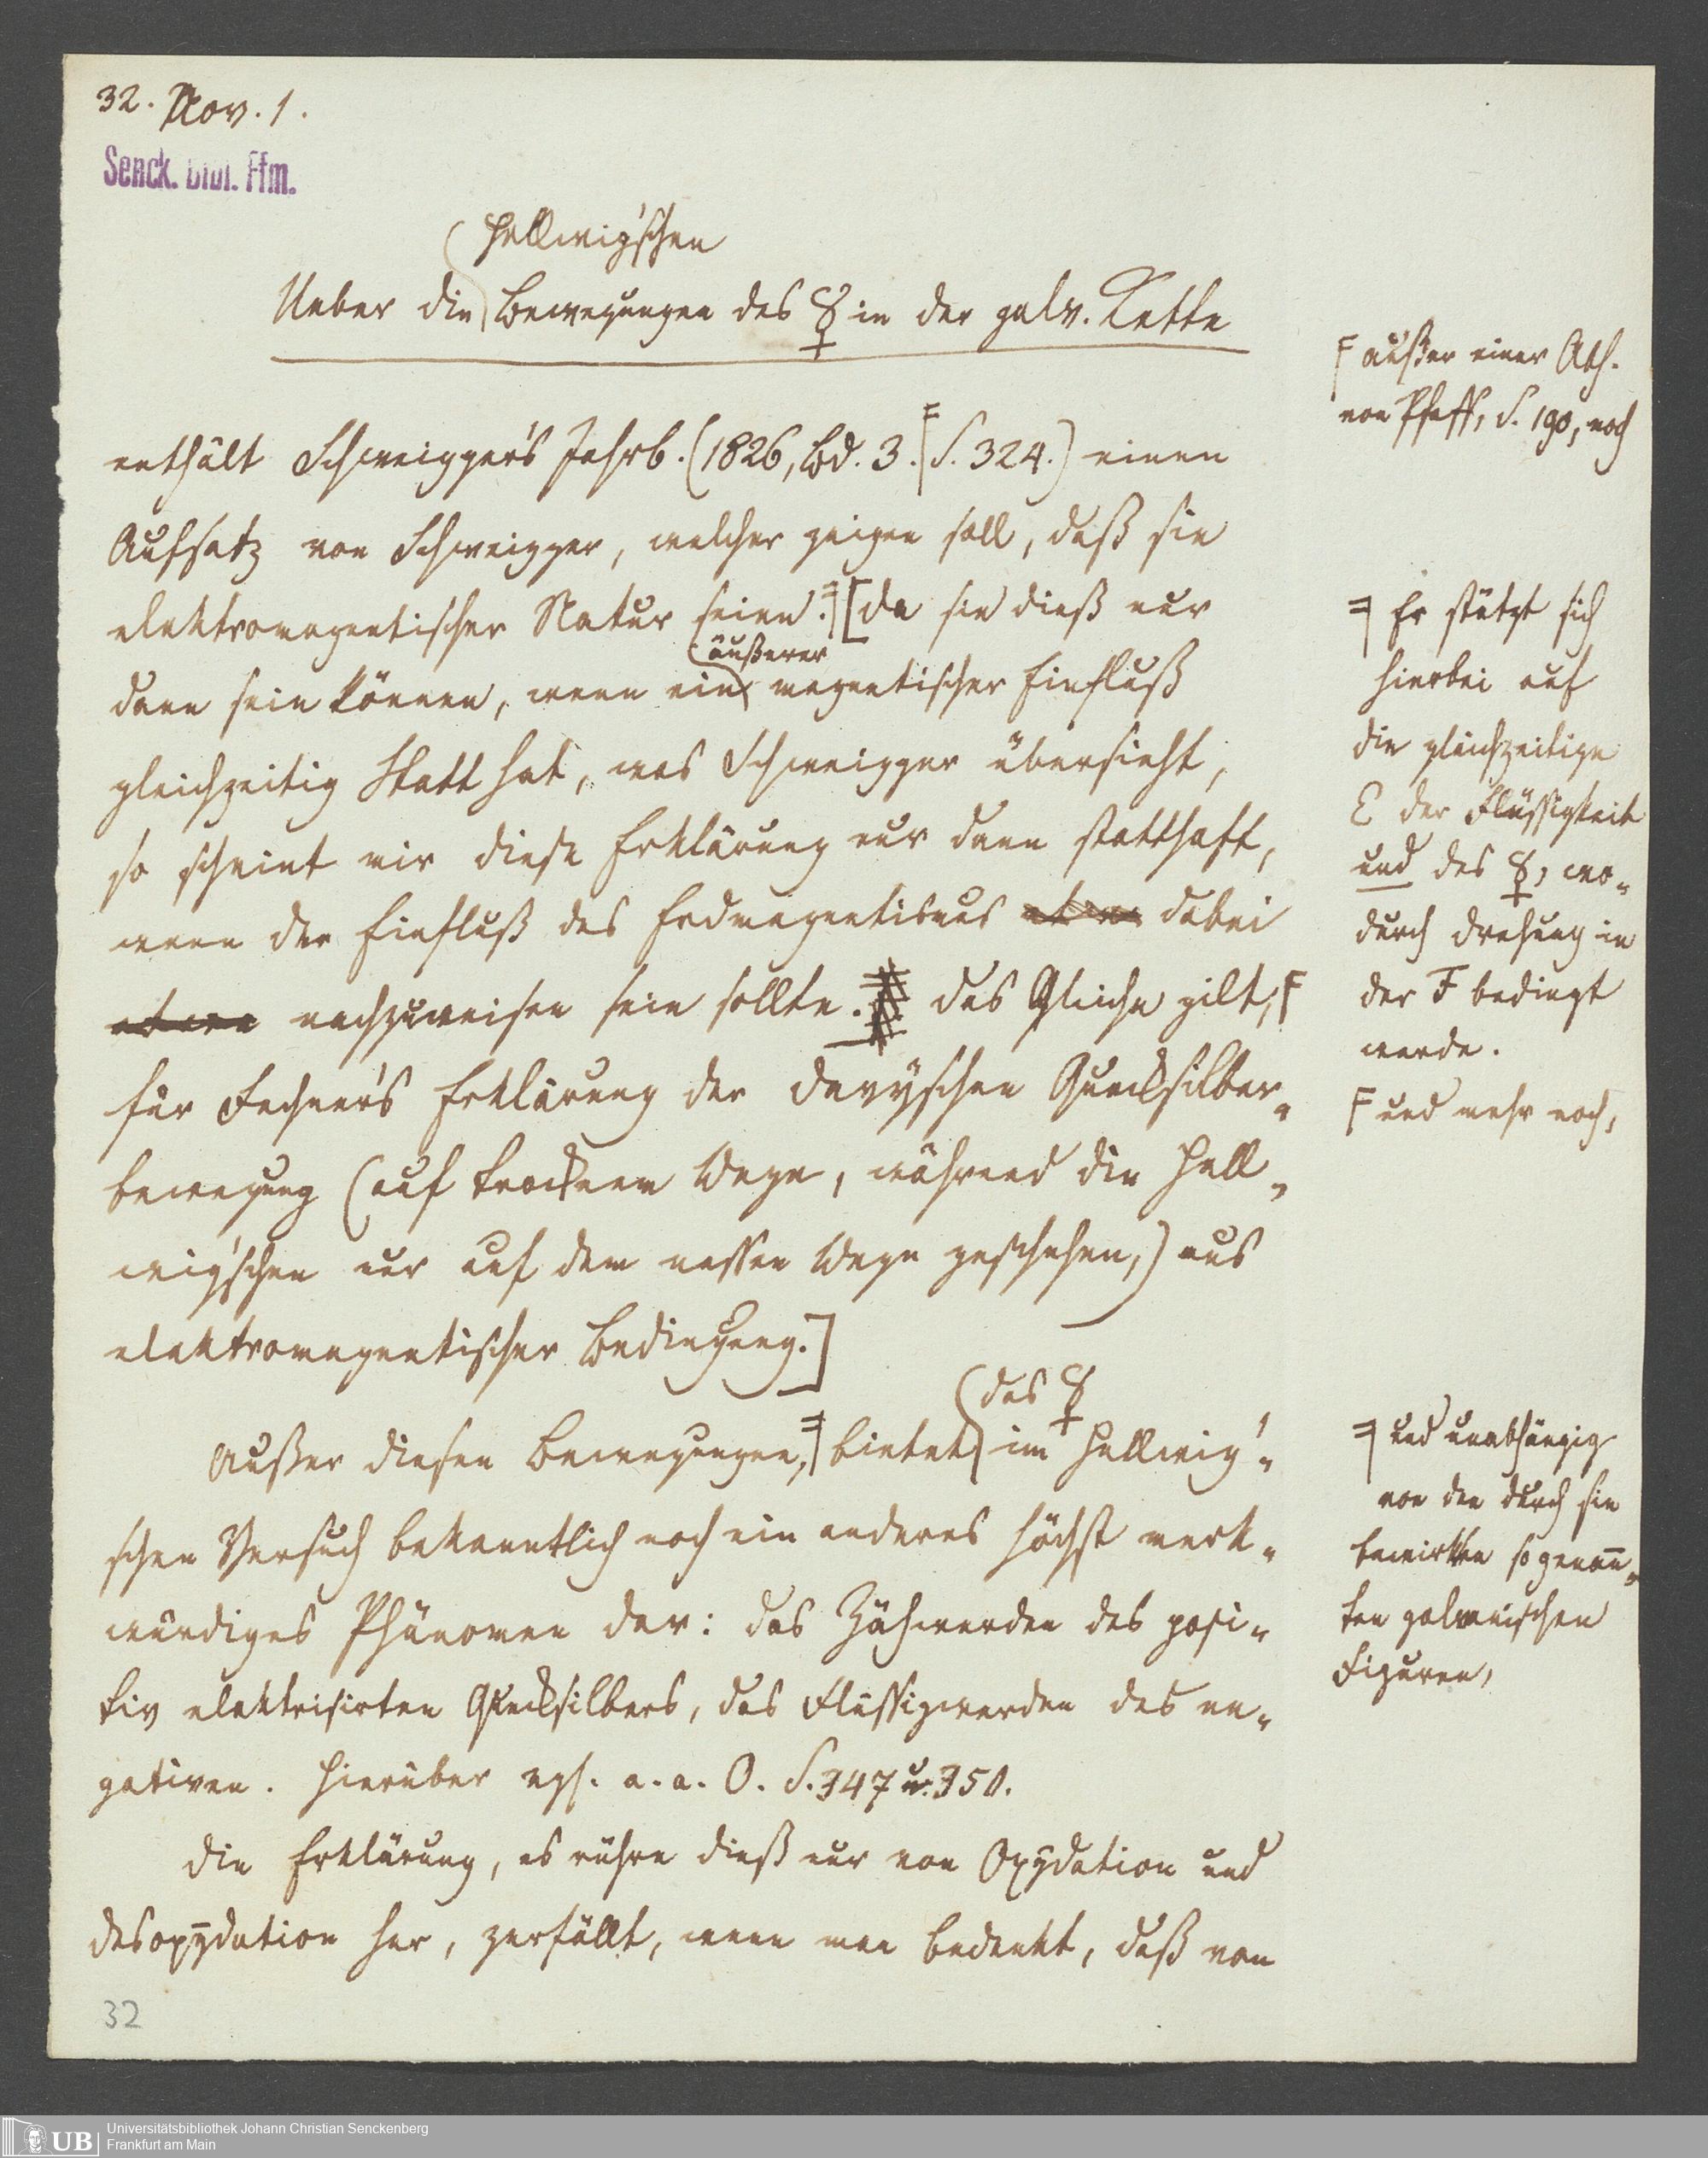 32. Nov. 1.
Senck. Bibl. Ffm.
Hellwig'schen
Ueber die Bewegungen des ☿ in der galv. Kette
enthält Schweigger's Jahrb. (1826, Bd. 3. S. 324.) einen
Aufsatz von Schweigger, welcher zeigen soll, daß sie
elektromagnetischer Natur seien. [Da sie dieß nur
äußerer
dann sein können, wenn ein magnetischer Einfluß
gleichzeitig Statt hat, was Schweigger übersieht,
so scheint mir diese Erklärung nur dann statthaft,
wenn der Einfluß des Erdmagnetismus etwa dabei
etwa nachzuweisen sein sollte. Das Gleiche gilt,
für Fechner's Erklärung der Davyschen Quecksilber-
bewegung (auf trocknem Wege, während die Hell-
wig'schen nur auf dem nassen Wege geschehen,) aus
elektromagnetischer Bedingung.]
das ☿
Außer diesen Bewegungen, bietet im Hellwig'-
schen Versuch bekanntlich noch ein anderes höchst merk-
würdiges Phänomen dar: das Zähwerden des posi-
tiv elektrisirten Quecksilbers, das Flüssigwerden des ne-
gativen. Hierüber vgl. a. a. O. S. 347 u. 350.
Die Erklärung, es rühre dieß nur von Oxydation und
Desoxydation her, zerfällt, wenn man bedenkt, daß von
32
außer einer Abh.
von Pfaff, S. 190, noch
Er stützt sich
hierbei auf
die gleichzeitige
E der Flüssigkeit
und des ☿, wo-
durch Drehung in
der F bedingt
werde.
und mehr noch,
und unabhängig
von den durch sie
bewirkten sogenann-
ten galvanischen
Figuren,
UB
Universitätsbibliothek Johann Christian Senckenberg
Frankfurt am Main